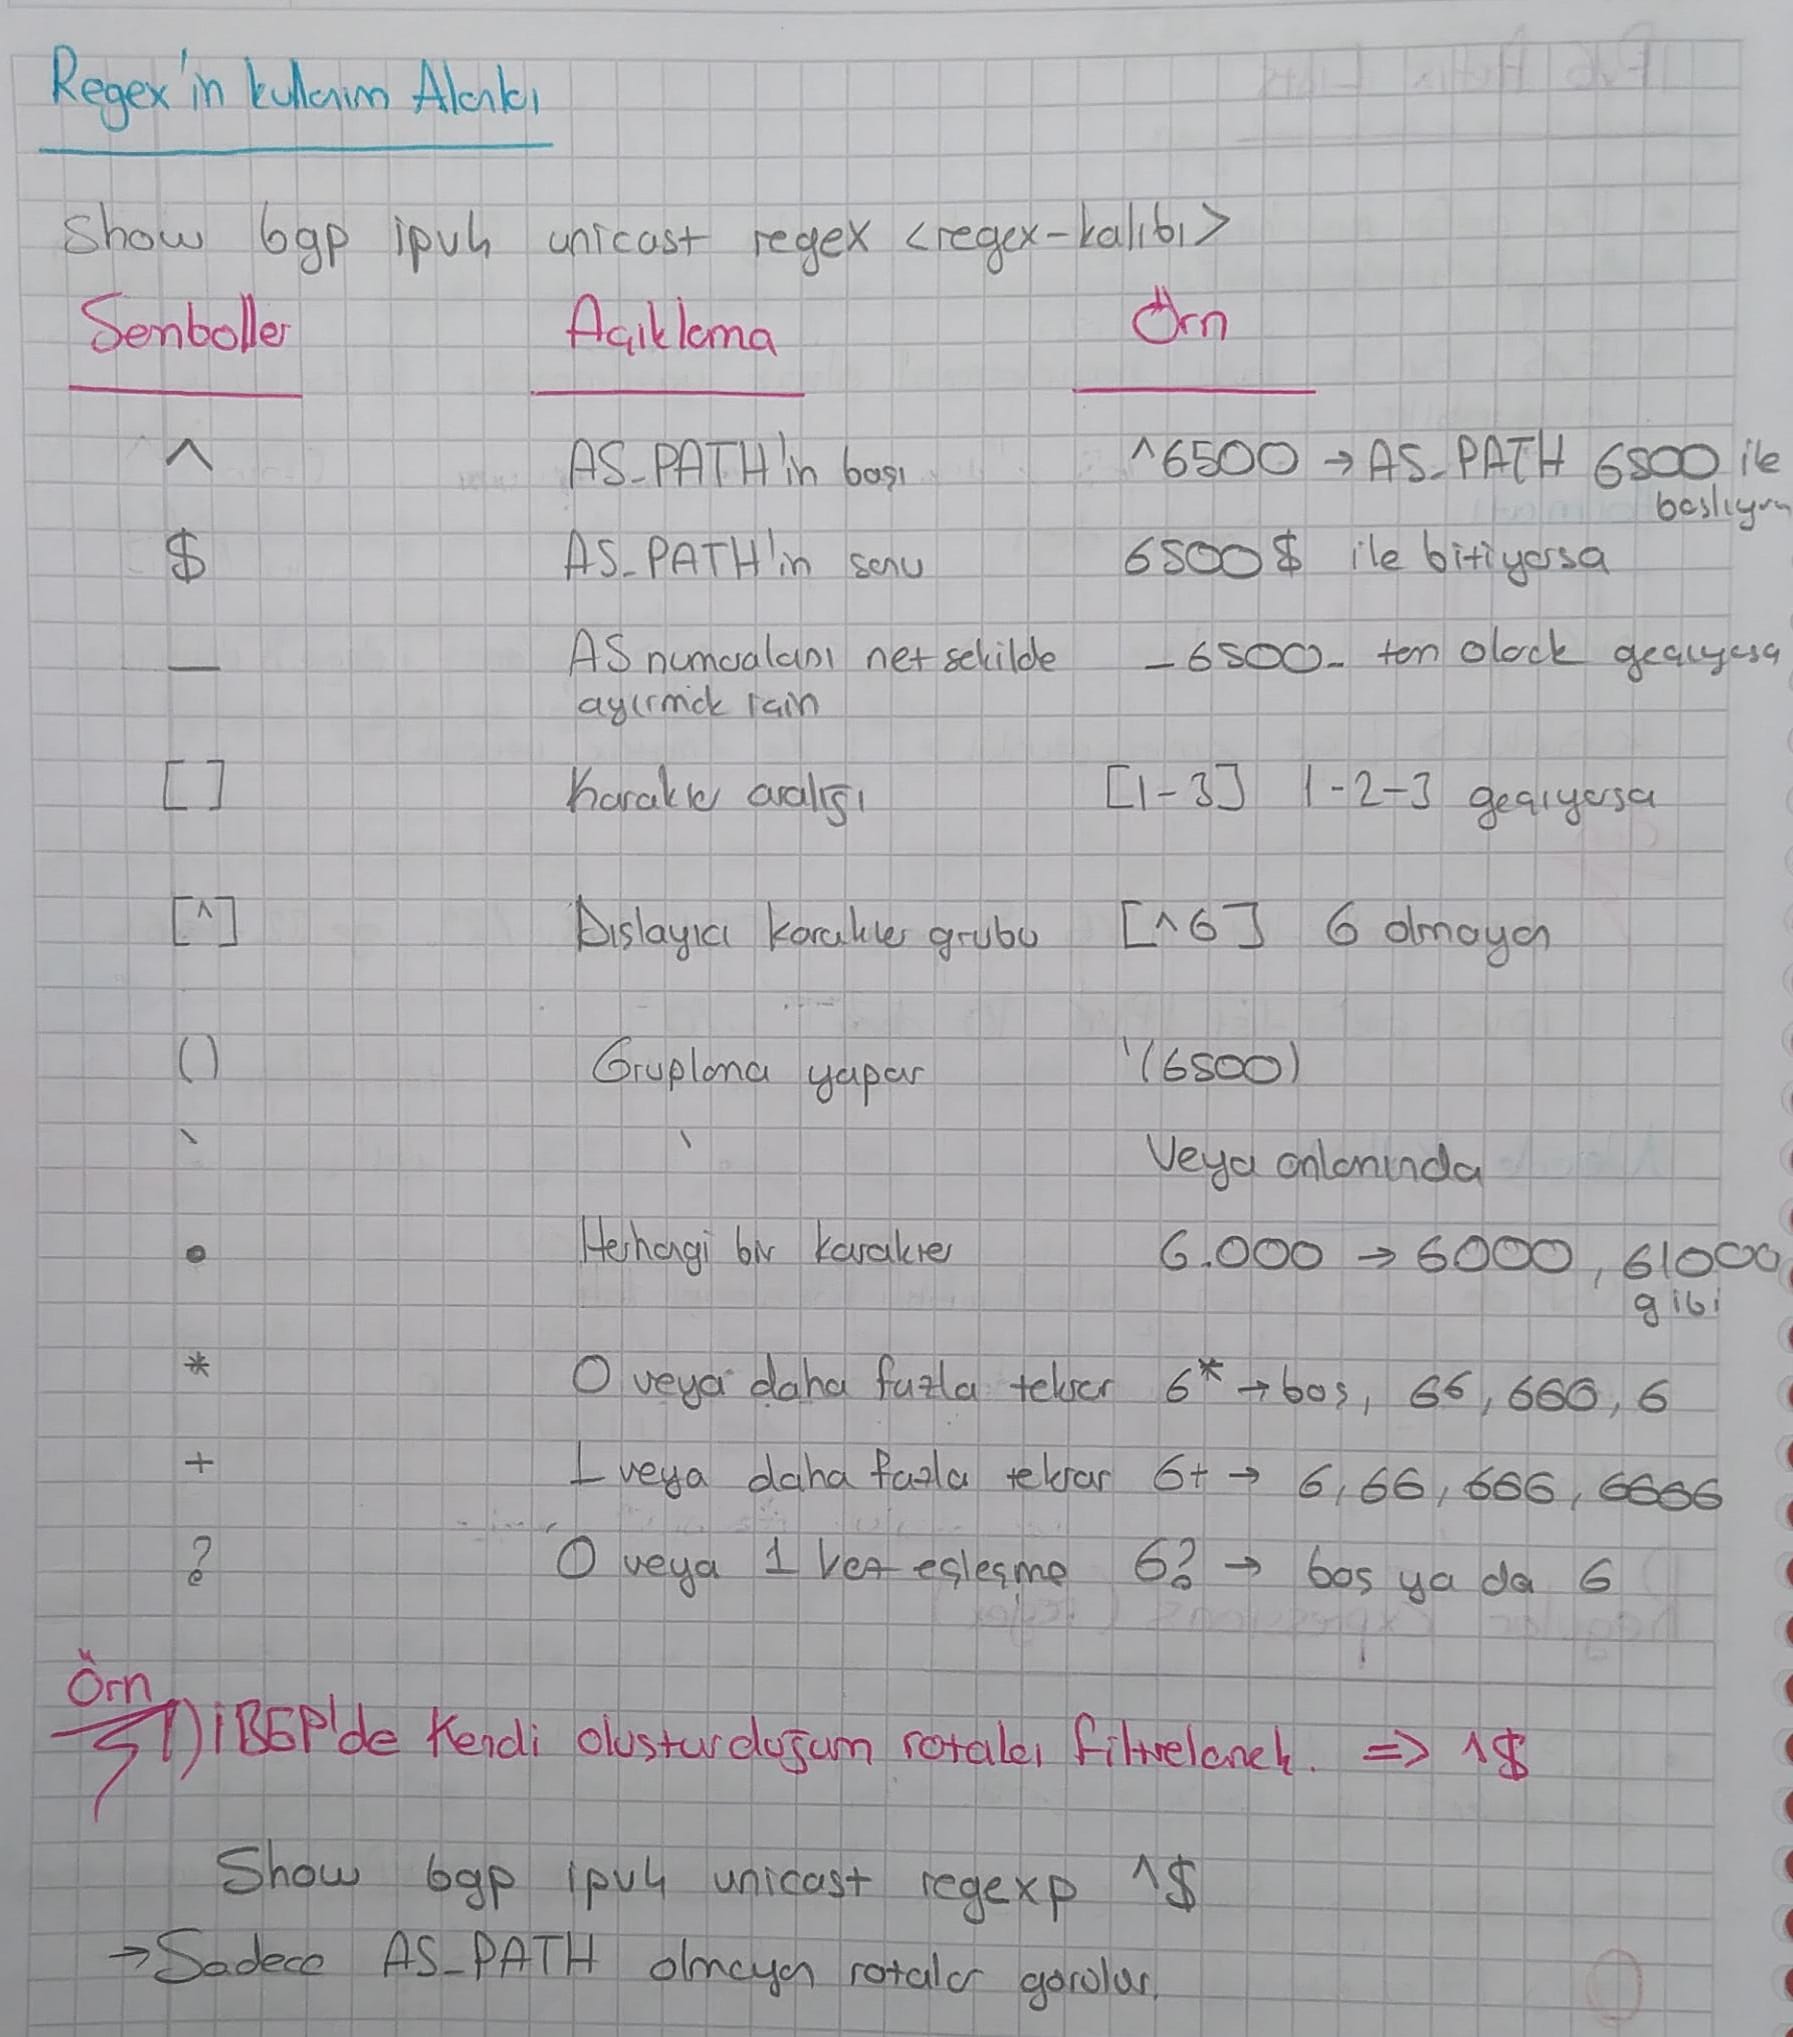 Regex'in kullanım Alanları
Show bgp ipv4 unicast regex <regex-kalıbı>
Semboller Açıklama Örn
^ AS_PATH'in başı ^6500 → AS_PATH 6500 ile
başlıyorsa
$ AS_PATH'in sonu 6500$ ile bitiyorsa
_ AS numaralarını net sekilde _6500_ tam olarak geçiyorsa
ayırmak için
[ ] Karakter aralığı [1-3] 1-2-3 geçiyorsa
[^] Dışlayıcı karakter grubu [^6] 6 olmayan
() Gruplama yapar (6500)
Veya anlamında
. Herhangi bir karakter 6.000 → 6000, 61000
gibi
* 0 veya daha fazla tekrar 6* → boş, 66, 660, 6
+ 1 veya daha fazla tekrar 6+ → 6, 66, 666, 6666
? 0 veya 1 kez eşleşme 6? → bos ya da 6
Örn
1) iBGP'de Kendi oluşturduğum rotaları filtrelemek. => ^$
Show bgp ipv4 unicast regexp ^$
→ Sadece AS_PATH olmayan rotalar görülür.